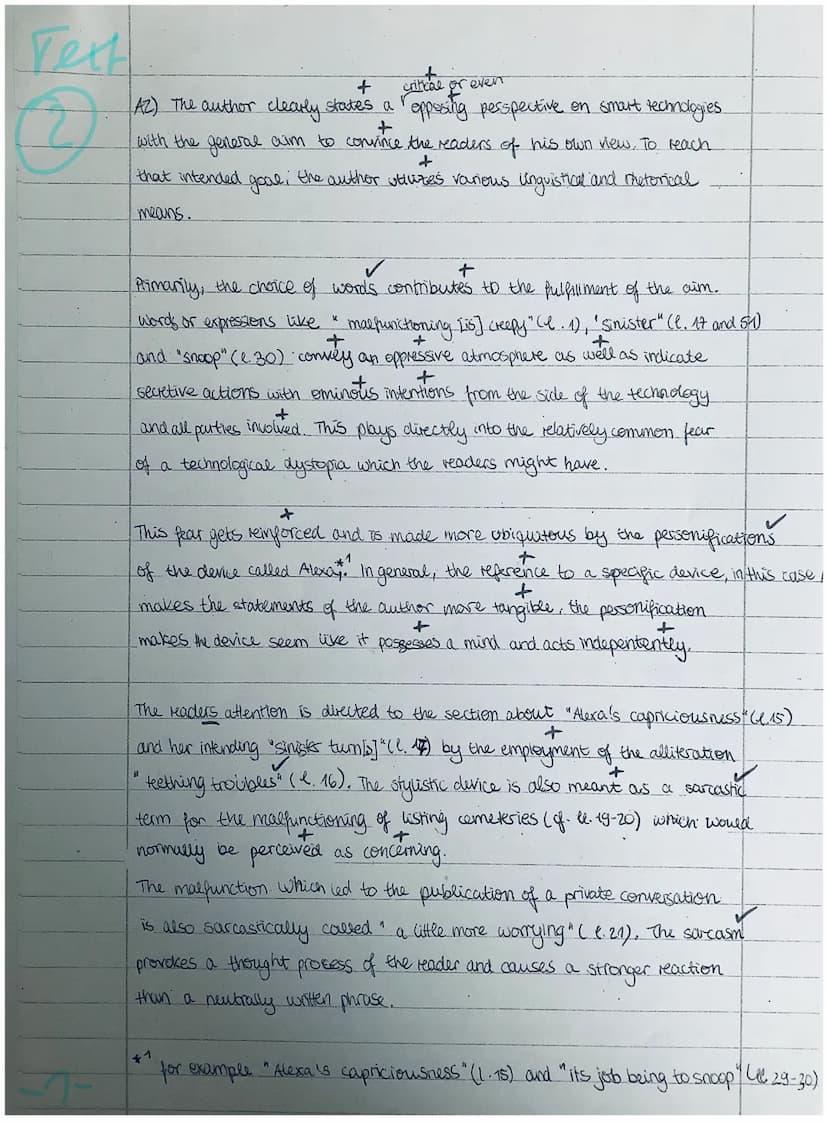 Text
2
critical or even
A2) The author clearly states a opposing perspective on smart technologies
with the general aim to convince the readers of his own view. To reach
that intended goal, the author utilizes various linguistical and rhetorical
means.
Primarily, the choice of words contributes to the fulfillment of the aim.
Words or expressions like "malfunctioning [is] creepy" (l. 1), "sinister" (l. 17 and 51)
and "snoop" (l. 30) convey an oppressive atmosphere as well as indicate
secretive actions with ominous intentions from the side of the technology
and all parties involved. This plays directly into the relatively common fear
of a technological dystopia which the readers might have.
This fear gets reinforced and is made more ubiquitous by the personifications
of the device called Alexa*1. In general, the reference to a specific device, in this case,
makes the statements of the author more tangible, the personification
makes the device seem like it possesses a mind and acts indepentently.
The readers attention is directed to the section about "Alexa's capriciousness" (l. 15)
and her intending "sinister turn[s]" (l. 17) by the employment of the alliteration
"teething troubles" (l. 16). The stylistic device is also meant as a sarcastic
term for the malfunctioning of listing cemeteries (cf. ll. 19-20) which would
normally be perceived as concerning.
The malfunction which led to the publication of a private conversation
is also sarcastically called "a little more worrying" (l. 21). The sarcasm
provokes a thought process of the reader and causes a stronger reaction
than a neutrally written phrase.
*1 for example "Alexa's capriciousness" (l. 15) and "its job being to snoop" (ll. 29-30)
-1-